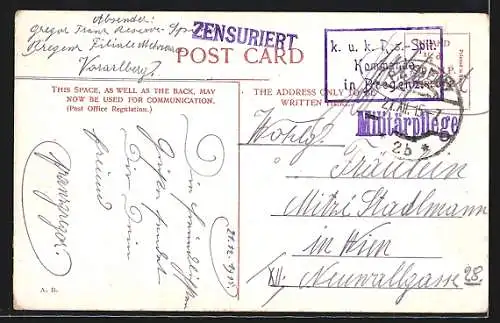 Absender:
Gregor Franz Reserve
Bregenz Filiale
Vorarlberg
ZENSURIERT
POST CARD
k. u. k. Res.-Spit.
Kommando
in Bregenz
BREGENZ
21.XII.15-7
2b *
Militärpflege
THIS SPACE, AS WELL AS THE BACK, MAY
NOW BE USED FOR COMMUNICATION.
(Post Office Regulation.)
THE ADDRESS ONLY TO BE
WRITTEN HERE.
21.12.1915.
Die herzlichsten
Grüße sendet
Dir Dein
Freund
Franzgregor.
Wohlg.
Fräulein
Mitzi Stadlmann
in Wien
XII. Neuwallgasse 28.
A. B.